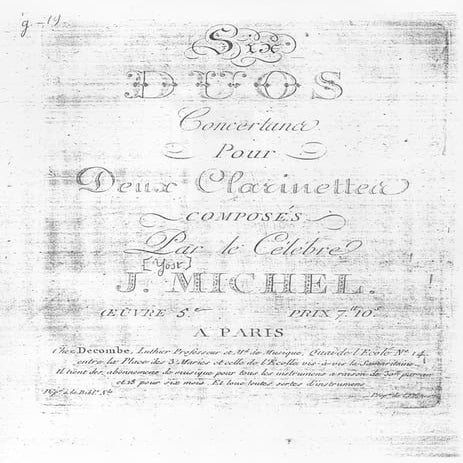 Six
DUOS
Concertans
Pour
Deux Clarinettes
COMPOSÉS
Par le Célébre
[Yost]
J. MICHEL.
ŒUVRE 5.e PRIX 7.# 10.s
A PARIS
Chez Decombe, Luthier Professeur et Md. de Musique, Quai de l'Ecole No. 14,
entre la Place des 3 Maries et celle de l'Ecolle vis-à-vis la Samaritaine
Il tient des abonnemens de musique pour tous les instrumens a raison de par an
et 18 pour six mois. Et loue toutes sortes d'instrumens